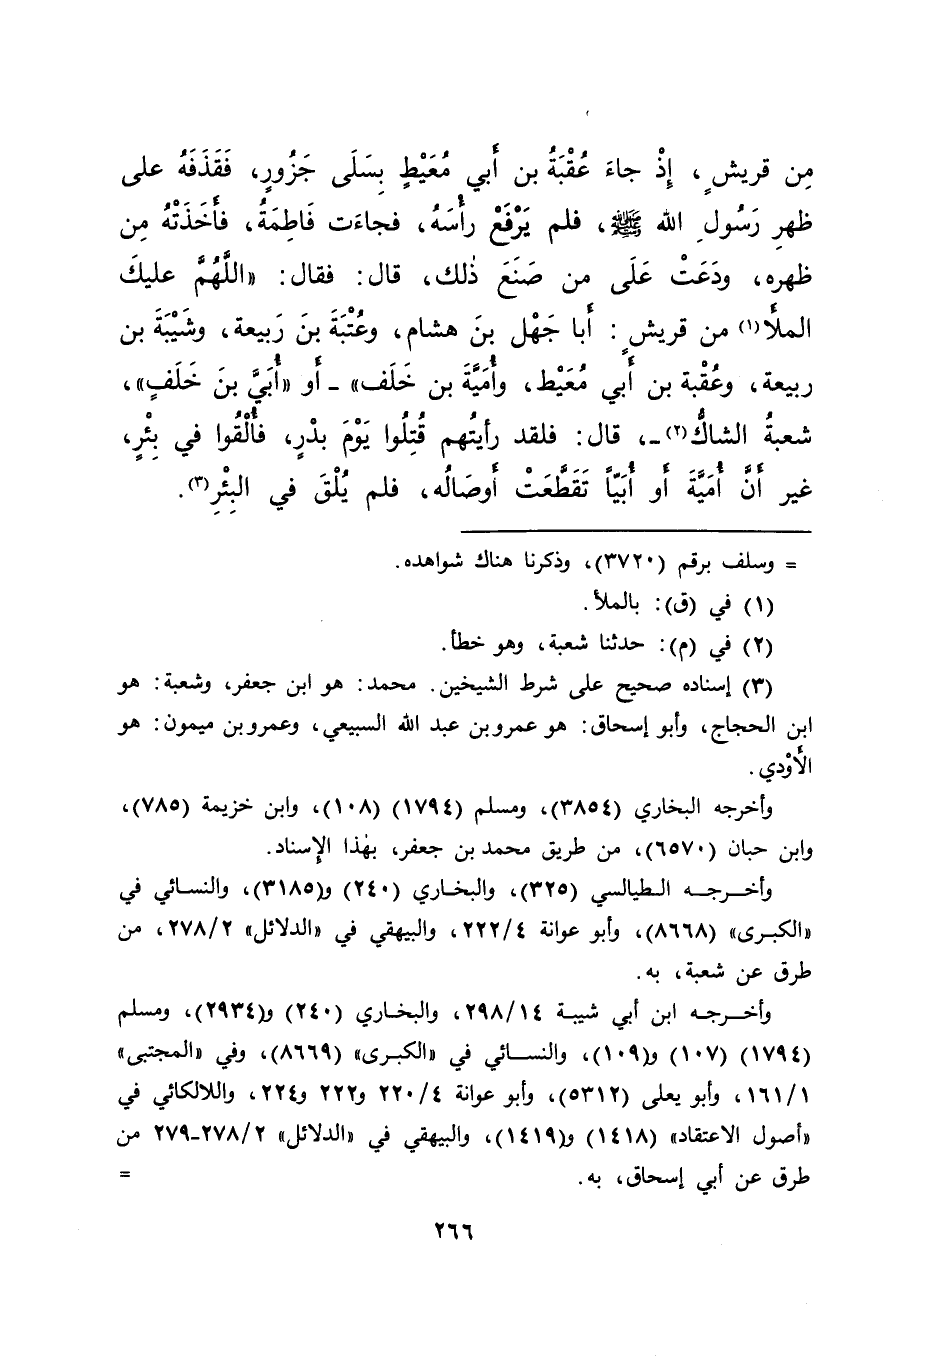 مِن قريشٍ، إِذْ جاءَ عُقْبَةُ بن أَبي مُعَيْطٍ بِسَلَى جَزُورٍ، فَقَذَفَهُ على
ظهرِ رَسُولِ الله ﷺ، فلم يَرْفَعْ رأْسَهُ، فجاءَت فَاطِمَةُ، فأَخَذَتْهُ مِن
ظهرِه، ودَعَتْ عَلَى من صَنَعَ ذٰلك، قال: فقال: «اللَّهُمَّ عليكَ
الملأَ(١) من قريشٍ: أَبا جَهْلِ بنَ هشام، وعُتْبَةَ بنَ رَبيعة، وشَيْبَةَ بن
ربيعة، وعُقْبة بن أَبي مُعَيْط، وأُمَيَّةَ بن خَلَف» - أَو «أُبَيَّ بنَ خَلَفٍ»،
شعبةُ الشاكُّ(٢) -، قال: فلقد رأيتُهم قُتِلُوا يَوْمَ بدْرٍ، فأُلْقُوا في بِئْرٍ،
غير أَنَّ أُمَيَّةَ أَو أُبَيّاً تَقَطَّعَتْ أَوصَالُه، فلم يُلْقَ في البِئْرِ(٣).
= وسلف برقم (٣٧٢٠)، وذكرنا هناك شواهده.
(١) في (ق): بالملأ.
(٢) في (م): حدثنا شعبة، وهو خطأ.
(٣) إسناده صحيح على شرط الشيخين. محمد: هو ابن جعفر، وشعبة: هو
ابن الحجاج، وأبو إسحاق: هو عمرو بن عبد الله السبيعي، وعمرو بن ميمون: هو
الأَوْدي.
وأخرجه البخاري (٣٨٥٤)، ومسلم (١٧٩٤) (١٠٨)، وابن خزيمة (٧٨٥)،
وابن حبان (٦٥٧٠)، من طريق محمد بن جعفر، بهٰذا الإسناد.
وأخرجه الطيالسي (٣٢٥)، والبخاري (٢٤٠) و(٣١٨٥)، والنسائي في
«الكبرى» (٨٦٦٨)، وأبو عوانة ٢٢٢/٤، والبيهقي في «الدلائل» ٢٧٨/٢، من
طرق عن شعبة، به.
وأخرجه ابن أبي شيبة ٢٩٨/١٤، والبخاري (٢٤٠) و(٢٩٣٤)، ومسلم
(١٧٩٤) (١٠٧) و(١٠٩)، والنسائي في «الكبرى» (٨٦٦٩)، وفي «المجتبى»
١٦١/١، وأبو يعلى (٥٣١٢)، وأبو عوانة ٢٢٠/٤ و٢٢٢ و٢٢٤، واللالكائي في
«أصول الاعتقاد» (١٤١٨) و(١٤١٩)، والبيهقي في «الدلائل» ٢٧٨/٢-٢٧٩ من
طرق عن أبي إسحاق، به. =
٢٦٦